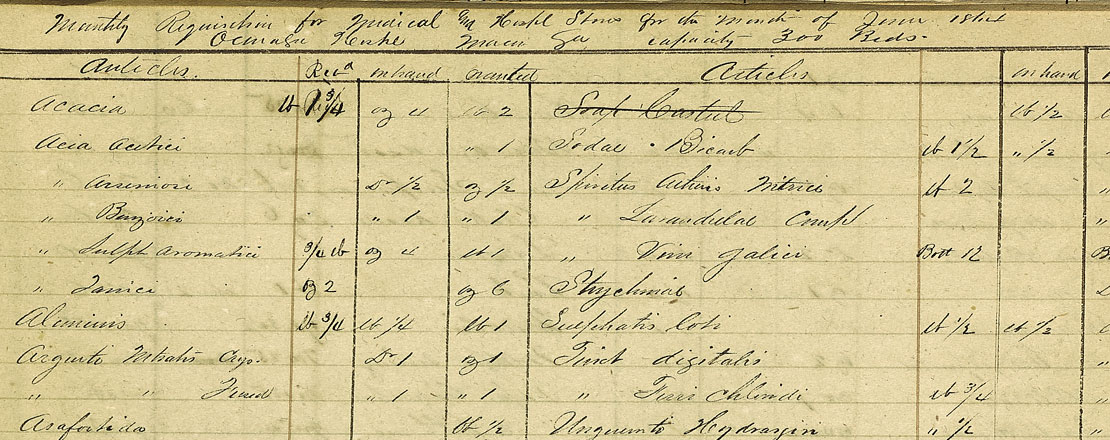 Monthly Requisition for Medical and Hospl Stores for the month of June 1864
Ocmulgee Hospl Macon Ga capacity 300 Beds.
Articles. Recd on hand wanted Articles on hand
Acacia lb 3/4 oz 4 lb 2 Soap Castil lb 1/2
Acia Acitici " 1 Sodae Bicarb lb 1 1/2 " 1/2
" Arseniosi Dr 1/2 oz 1/2 Spiritus Aetheris Nitrici lb 2
" Benzoici " 1 " 1 " Lavandulae Comp
" Sulph Aromatici 3/4 lb oz 4 lb 1 " Vini Galici Bott 12
" Tannici oz 2 oz 6 Strychniae
Aluminis lb 3/4 lb 1/4 lb 1 Sulphatis Loti lb 1/2 lb 1/2
Argenti Nitratis Crys. Dr 1 oz 1 Tinct digitalis
" " Fused " 1 " 1 " Ferri Chloridi lb 3/4
Asafoetida lb 1/2 Unguenti Hydrargiri " 1/2